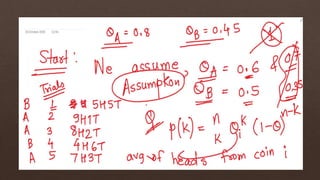 θA = 0.8 θB = 0.45 1
Start: We assume, θA = 0.6 & 0.7
Assumption θB = 0.5
Trials
B 1 5H5T
A 2 9H1T
A 3 8H2T
B 4 4H6T
A 5 7H3T
p(k) = n k θi^k (1-θ)^n-k
avg of heads from coin i